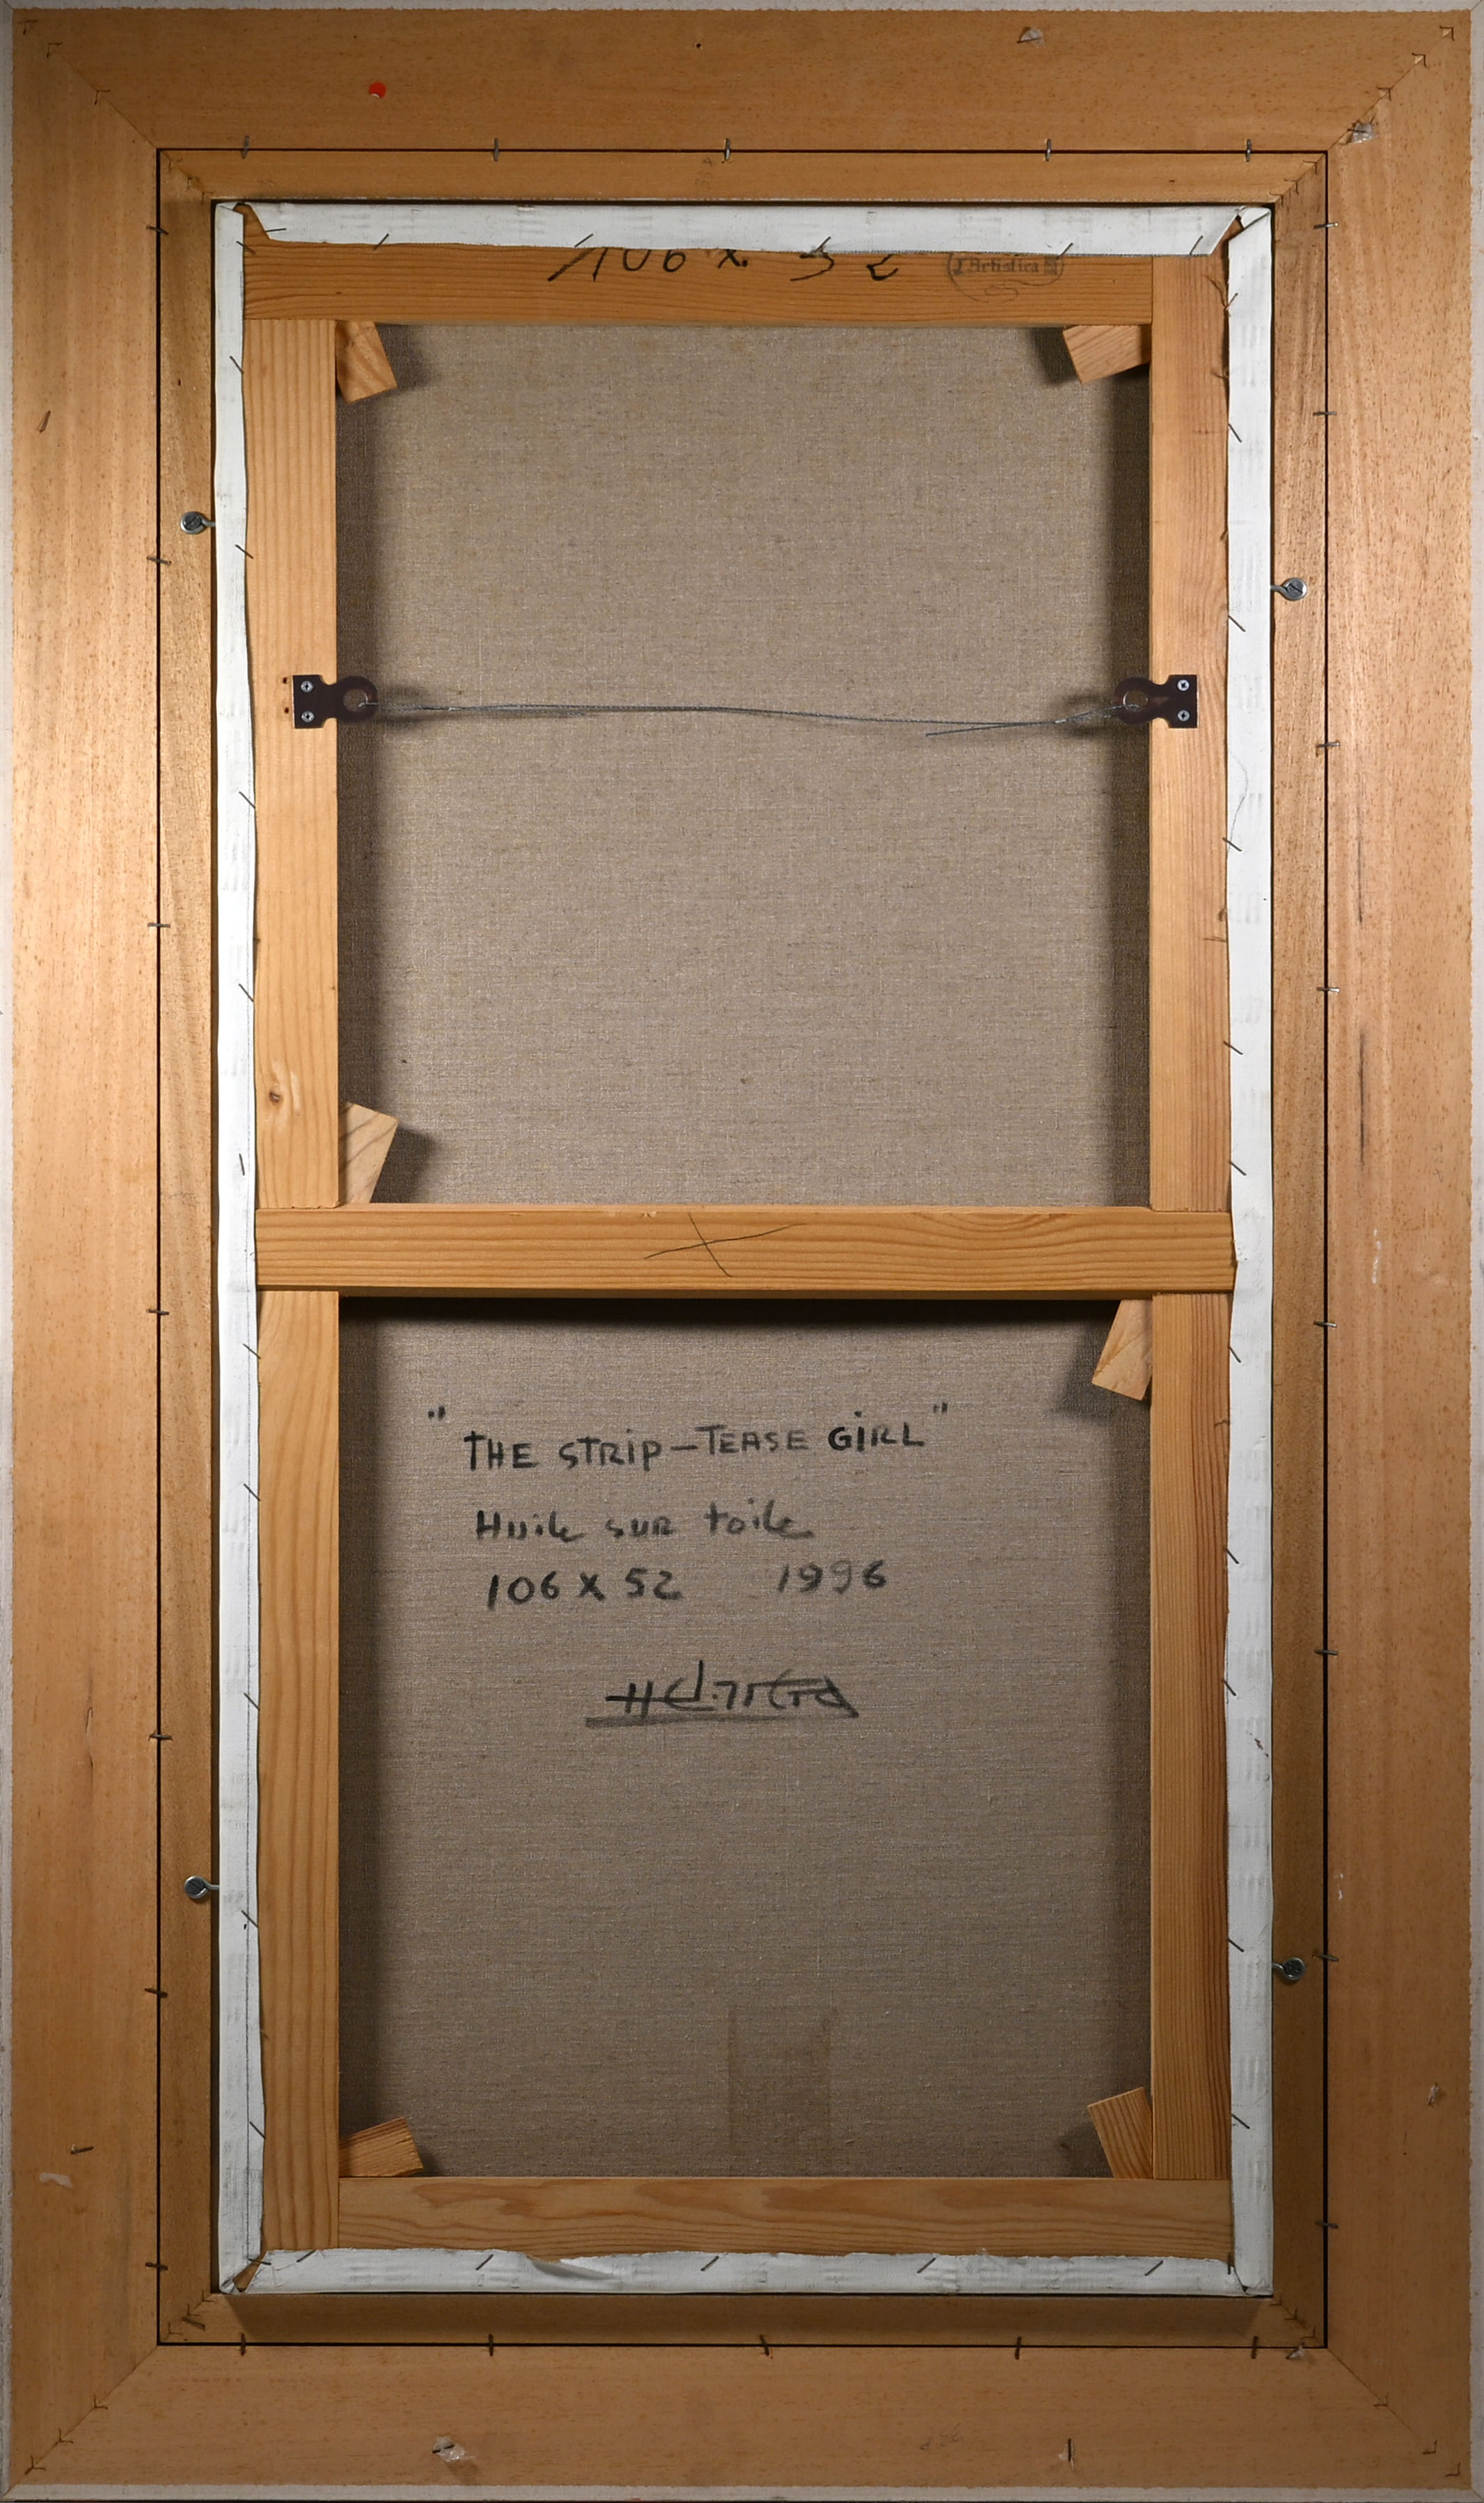 106 x 52
Artistica
"THE STRIP-TEASE GIRL"
Huile sur toile
106 x 52 1996